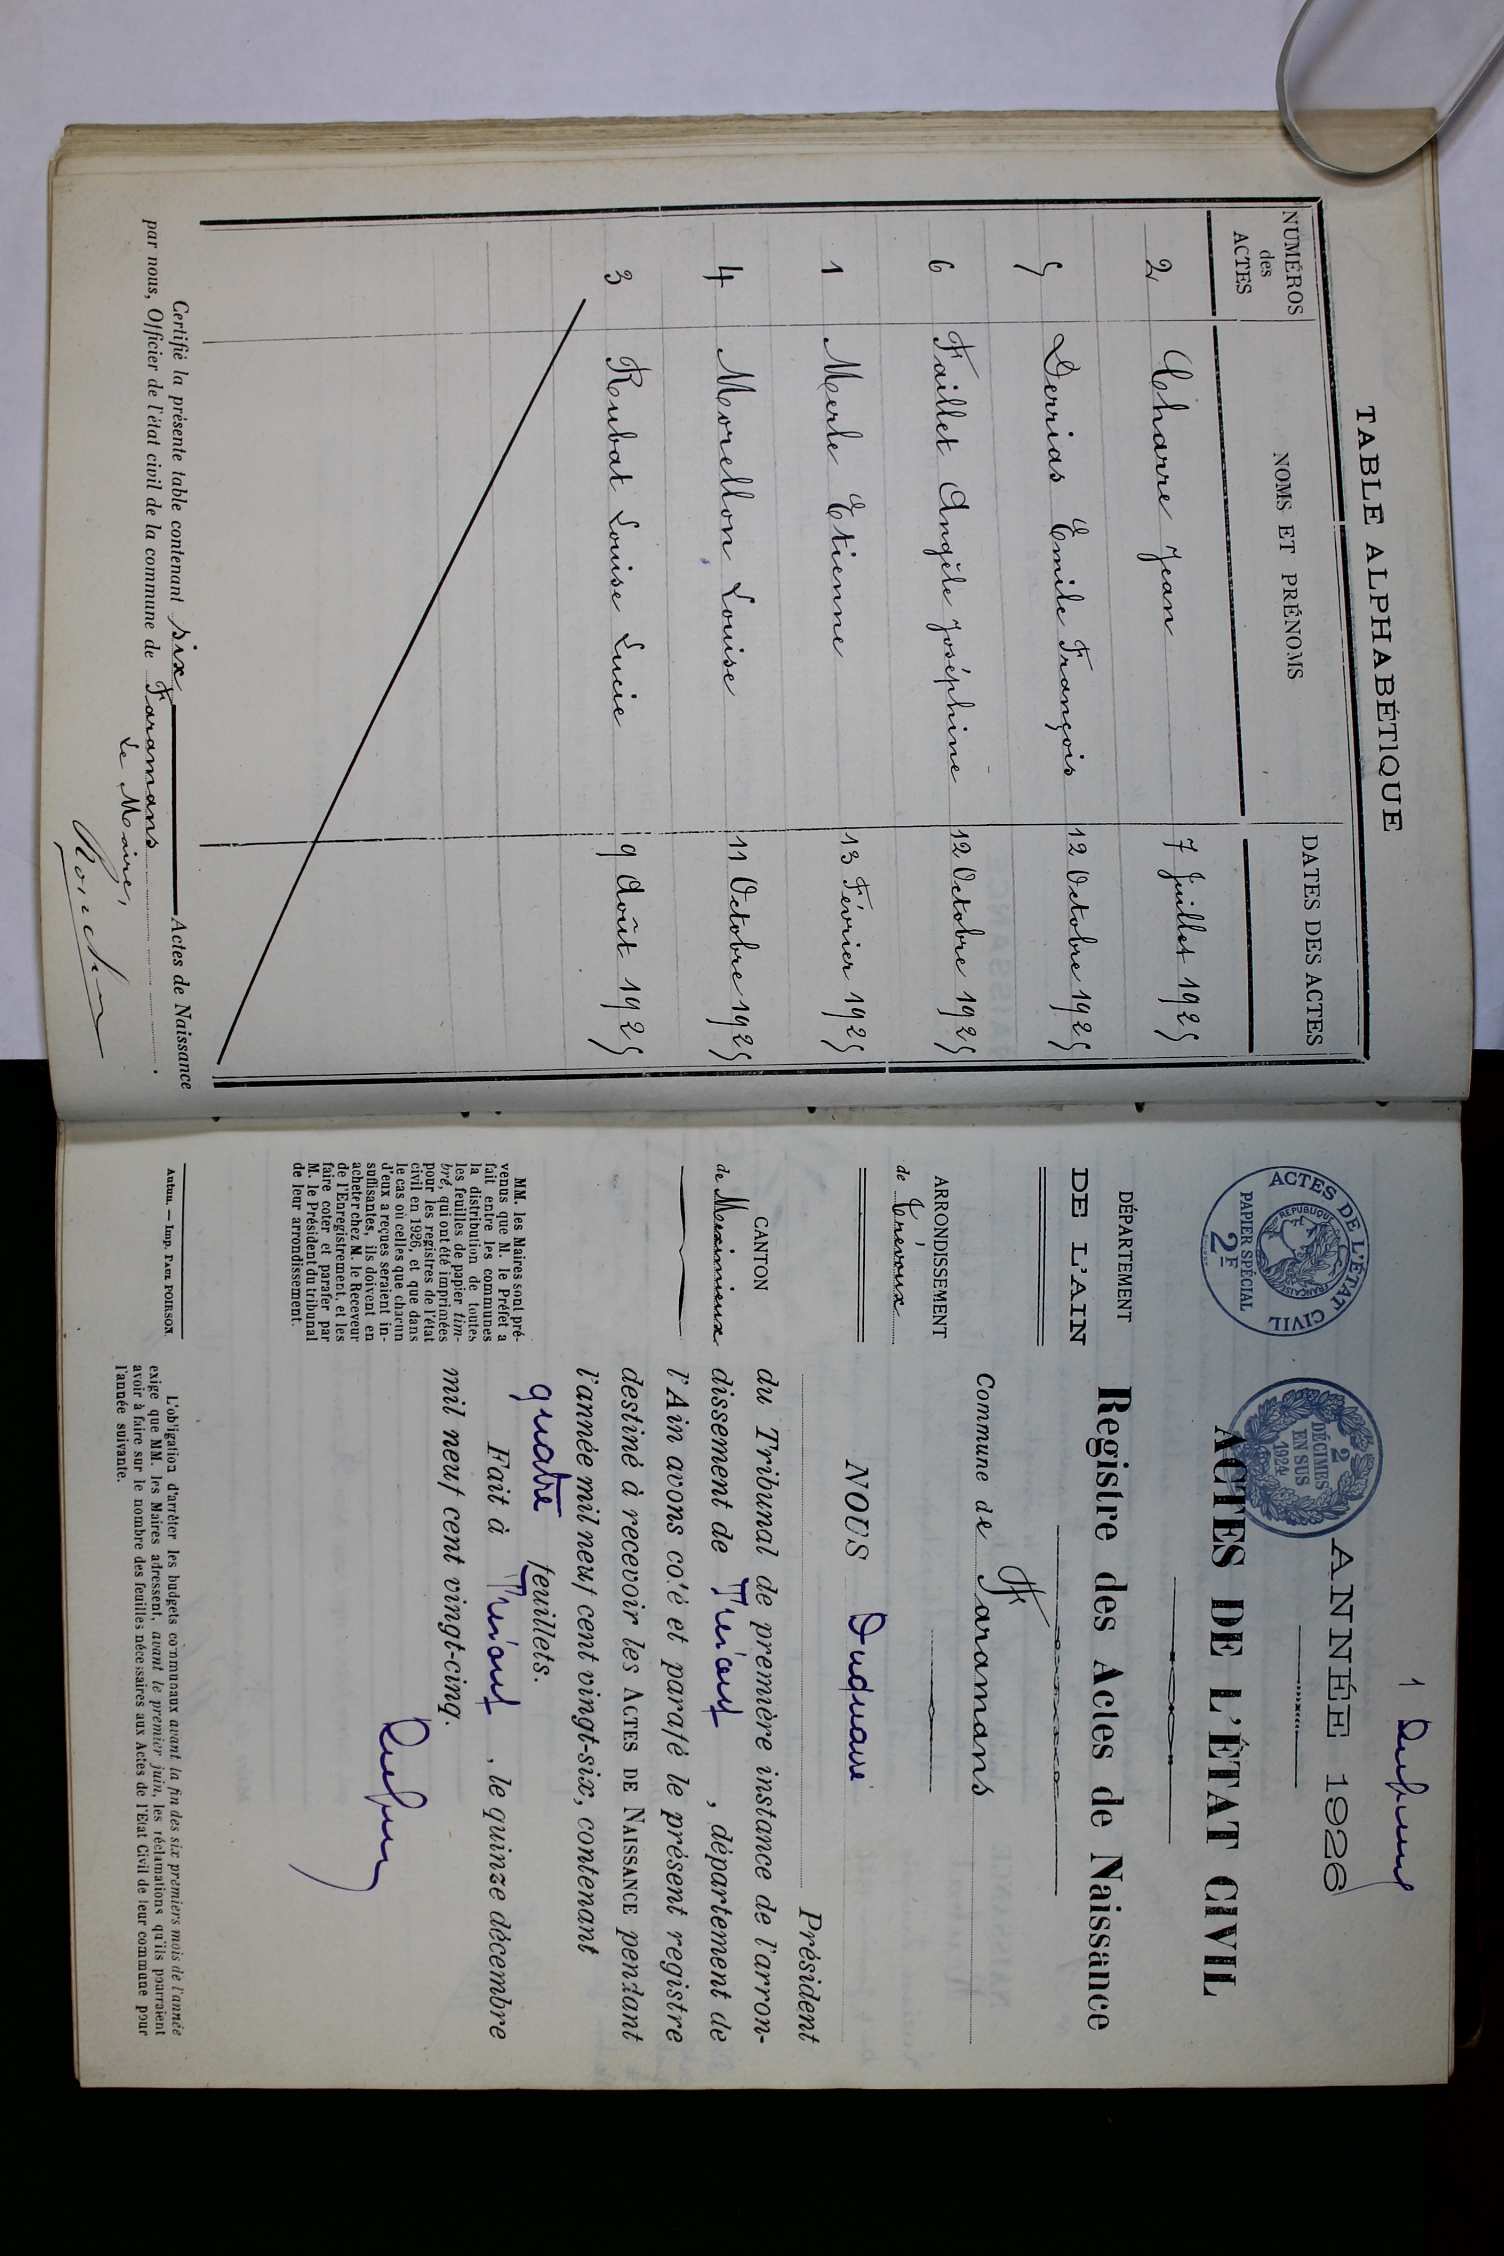 TABLE ALPHABÉTIQUE
NUMÉROS des ACTES
NOMS ET PRÉNOMS
DATES DES ACTES
2 Charre Jean 7 Juillet 1925
5 Derrias Emile François 12 Octobre 1925
6 Faillet Angèle Joséphine 12 Octobre 1925
1 Merle Etienne 13 Février 1925
4 Morellon Louise 11 Octobre 1925
3 Rubat Louise Lucie 9 Août 1925
Certifié la présente table contenant six Actes de Naissance
par nous, Officier de l'état civil de la commune de Faramans.
Le Maire,
1
ANNÉE 1926
ACTES DE L'ÉTAT CIVIL
RÉPUBLIQUE FRANÇAISE
PAPIER SPÉCIAL
2F
2
DÉCIMES
EN SUS
1924
ACTES DE L'ÉTAT CIVIL
Registre des Actes de Naissance
DÉPARTEMENT
DE L'AIN
ARRONDISSEMENT
de Trévoux
CANTON
de Meximieux
MM. les Maires sont pré-
venus que M. le Préfet a
fait entre les communes
la distribution de toutes
les feuilles de papier tim-
bré, qui ont été imprimées
pour les registres de l'état
civil en 1926, et que dans
le cas où celles que chacun
d'eux a reçues seraient in-
suffisantes, ils doivent en
acheter chez M. le Receveur
de l'Enregistrement, et les
faire coter et parafer par
M. le Président du tribunal
de leur arrondissement.
Autun. — Imp. PAUL POIRSON
Commune de Faramans
NOUS
Président
du Tribunal de première instance de l'arron-
dissement de Trévoux, département de
l'Ain avons coté et parafé le présent registre
destiné à recevoir les ACTES DE NAISSANCE pendant
l'année mil neuf cent vingt-six, contenant
quatre feuillets.
Fait à Trévoux, le quinze décembre
mil neuf cent vingt-cinq.
L'obligation d'arrêter les budgets communaux avant la fin des six premiers mois de l'année
exige que MM. les Maires adressent, avant le premier juin, les réclamations qu'ils pourraient
avoir à faire sur le nombre des feuilles nécessaires aux Actes de l'Etat Civil de leur commune pour
l'année suivante.